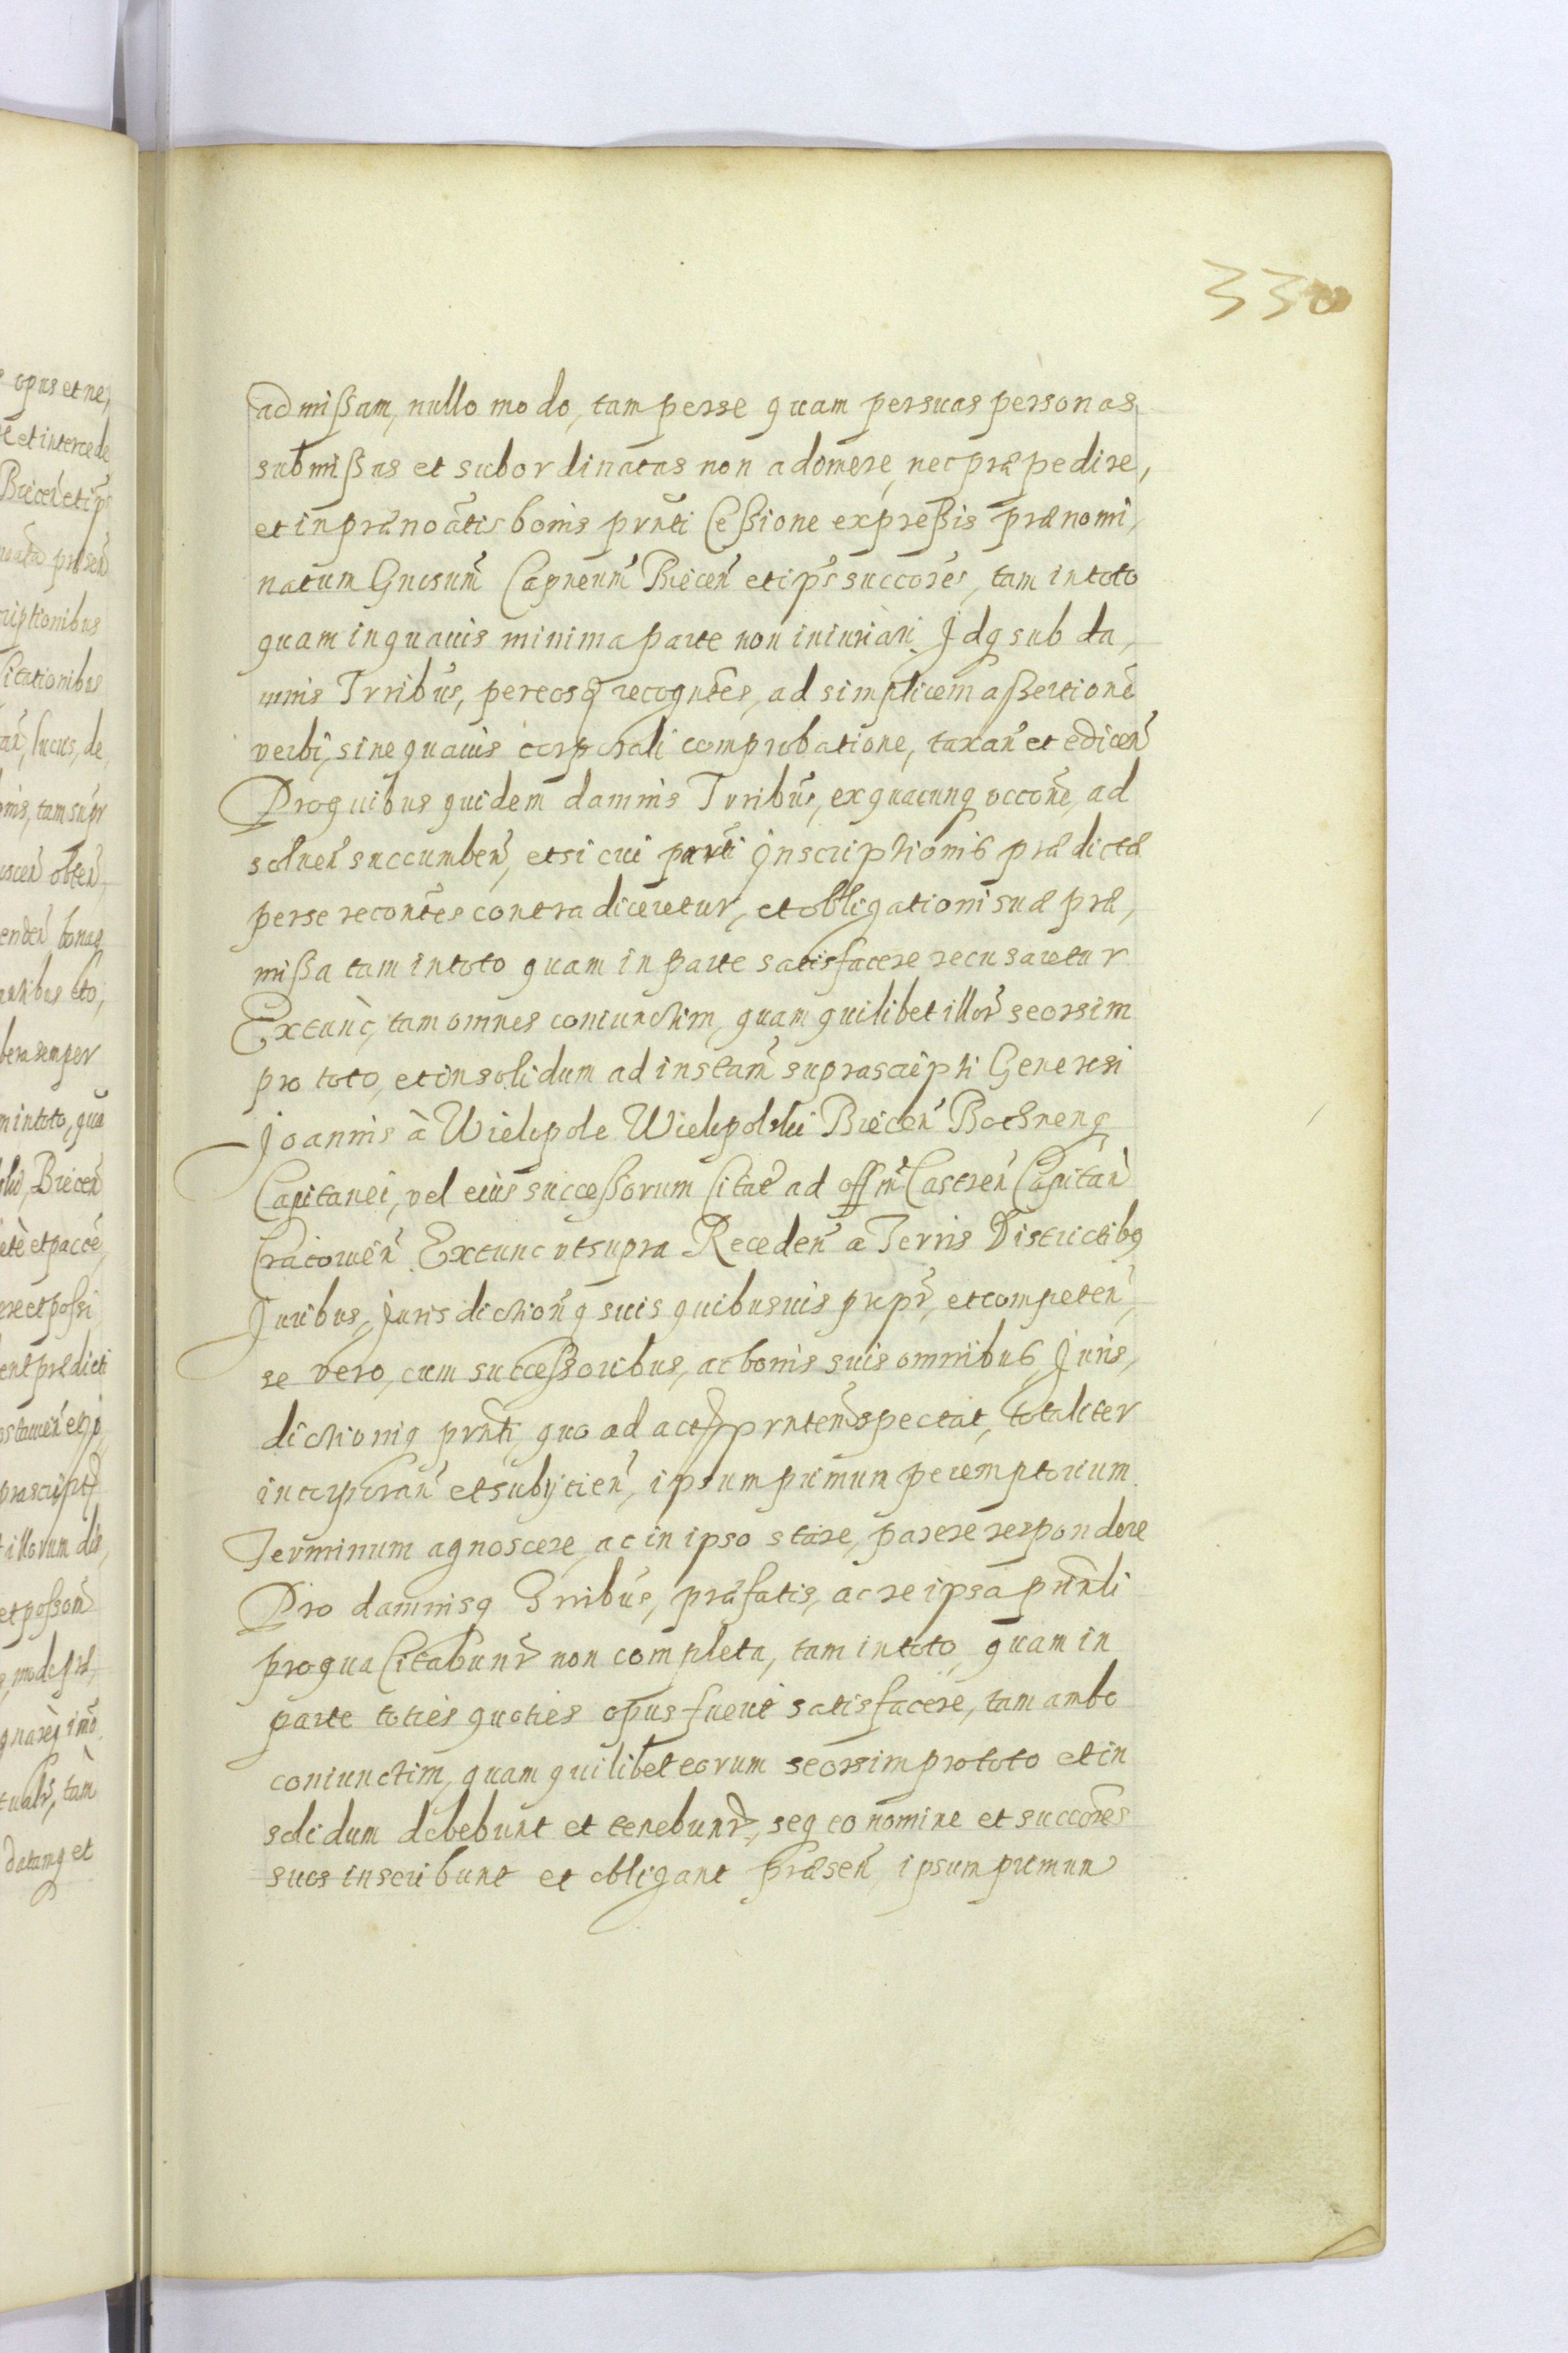 330
admißam, nullo modo, tam per se quam per suas personas
submißas et subordinatas non adomere, nec præpedire,
et in prænoatis bonis prnti Ceßione expreßis prænomi,
natum Gnosum Capneum Biecen et ips succores, tam in toto
quam in quavis minima parte non iniuriari. Idq sub da,
mnis Trribus, per eosq recogntes, ad simplicem aßertione
verbi, sine quavis corporali comprobatione, taxan et edicen
Pro quibus quidem damnis Trribus, ex quacunq occone, ad
soluen succumben, et si cui parti Inscriptionis prædictæ
per se recontes contradiceretur, et obligationi suæ præ,
mißa tam in toto quam in parte satisfacere recusaretur
Extunc, tam omnes coniunctim, quam quilibet illor seorsim
pro toto, et in solidum ad instam suprascripti Generosi
Joannis à Wielopole Wielopolski Biecen Bochnenq
Capitanei, vel eius succeßorum Citae ad offm Castren Capitan
Cracowien. Extunc ut supra Receden a Terris Districtibq
Juribus, Jurisdictionq suis quibusuis propr, et competen,
se vero, cum succeßoribus, ac bonis suis omnibus, Juris,
dictioniq prnti, quo ad act prntem spectat, totaliter
incorporan et subijcien, ipsum primum peremptorium
Terminum agnoscere, ac in ipso stare, parere respondere
Pro damnisq Trribus, præfatis, ac re ipsa prnli
pro qua Citabunr non completa, tam in toto, quam in
parte toties quoties opus fuerit satisfacere, tam ambo
coniunctim, quam quilibet eorum seorsim pro toto et in
solidum debebunt et tenebunr, seq eo nomine et succores
suos inscribunt et obligant præsen, ipsum primum
opus et ne,
et intercede
Biecen et ips
presen
criptionibus
Citationibus
lucus, de,
onis, tam supr
obten,
enden bonas
bera semper
in toto, qua
Biecen
et pacce,
ere et possi
prædicti
prascript
illorum
et posson
tam
datamq et